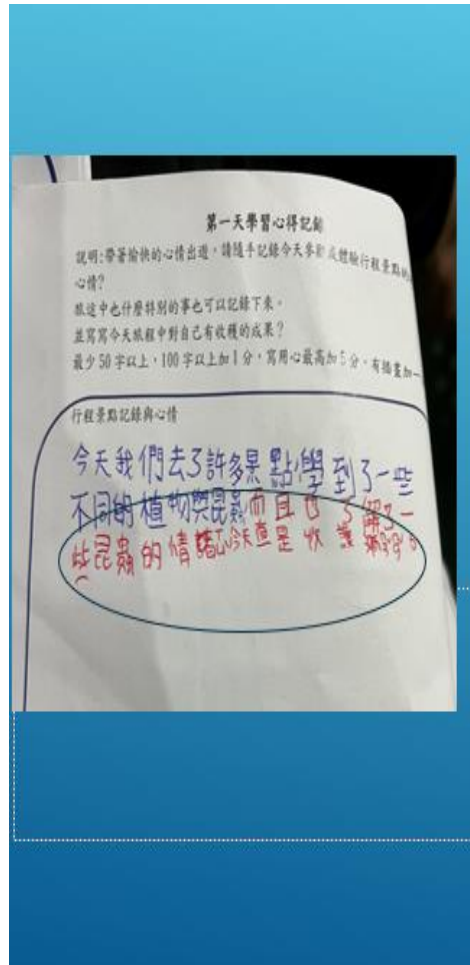 第一天學習心得記錄
說明:帶著愉快的心情出遊,請隨手記錄今天參觀或體驗行程景點的
心情?
旅途中也什麼特別的事也可以記錄下來。
並寫寫今天旅程中對自己有收穫的成果?
最少50字以上,100字以上加1分,寫用心最高加5分,有插畫加一
行程景點記錄與心情
今天我們去了許多景點學到了一些
不同的植物與昆蟲而且也了解了一
些昆蟲的情 今天真是收獲